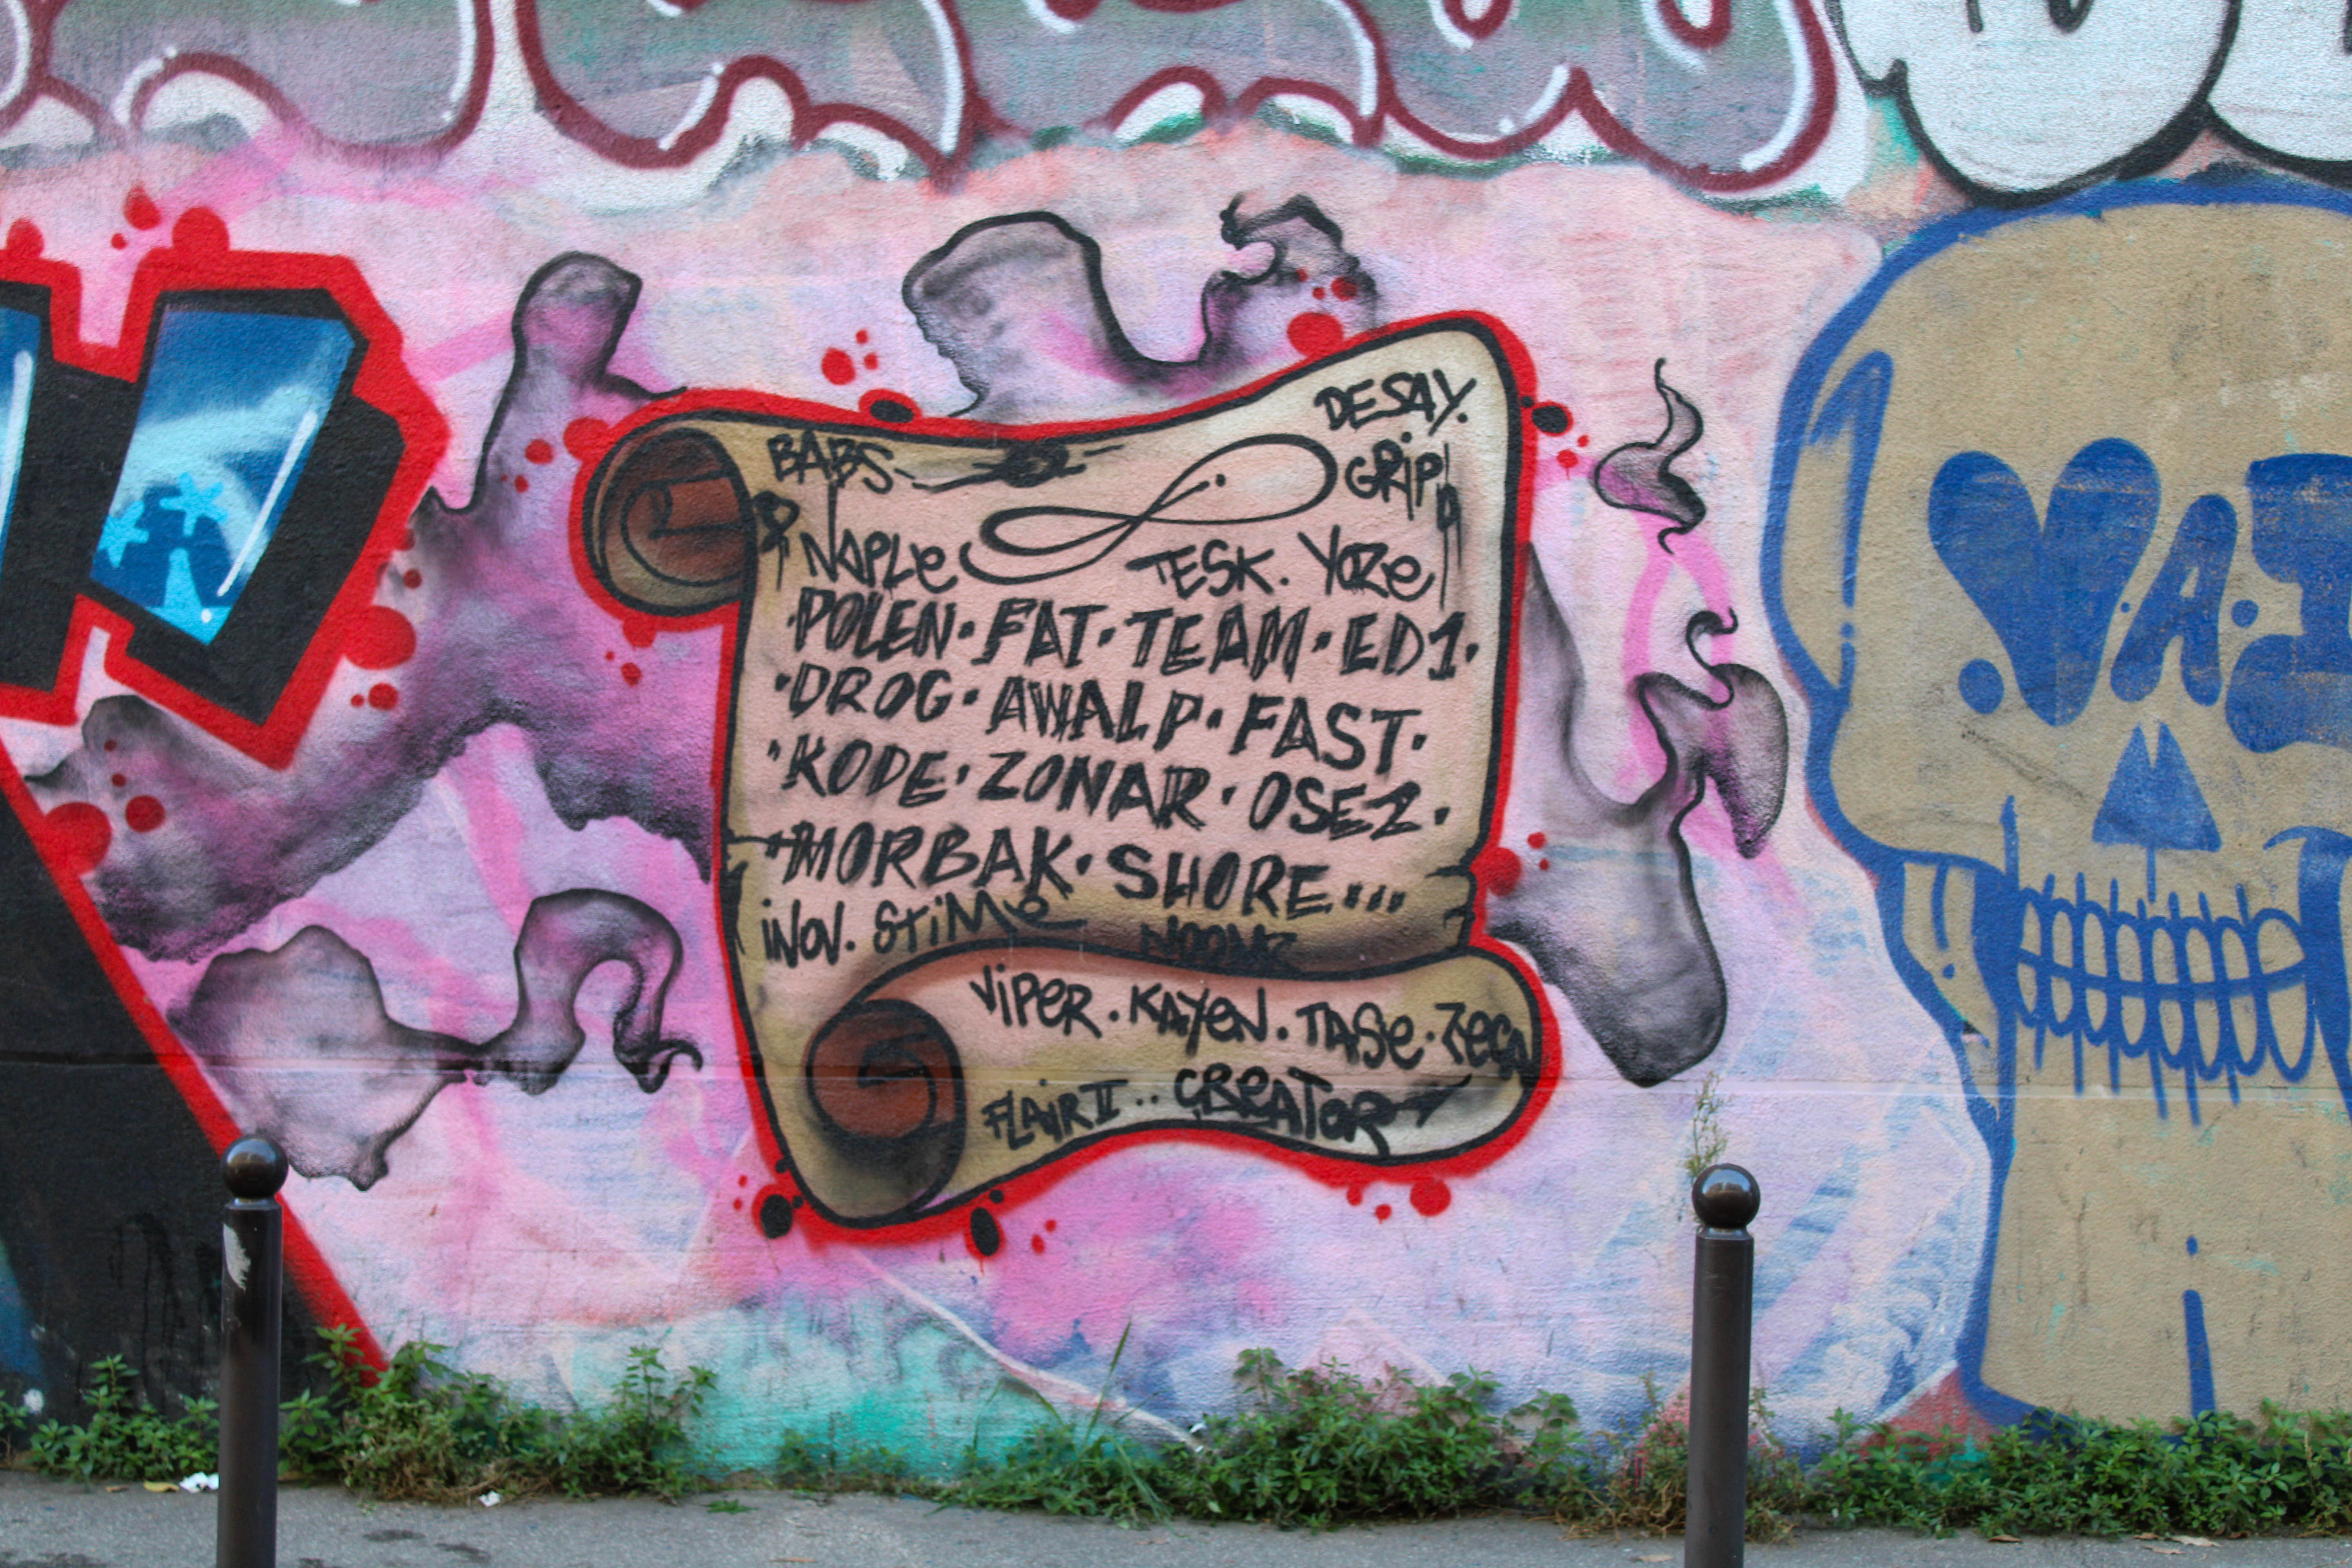 BABS
DESAY.
GRiP
NOPLe TESK. YOZe
·POLEN·FAT·TEAM·ED1·
·DROG·AWALP·FAST·
·KODE·ZONAR·OSEZ·
·MORBAK·SHORE....
iNOV. STiMe
ViPeR. KAYeN. TASe.
FLAiR II .. CREATOR
V.A.